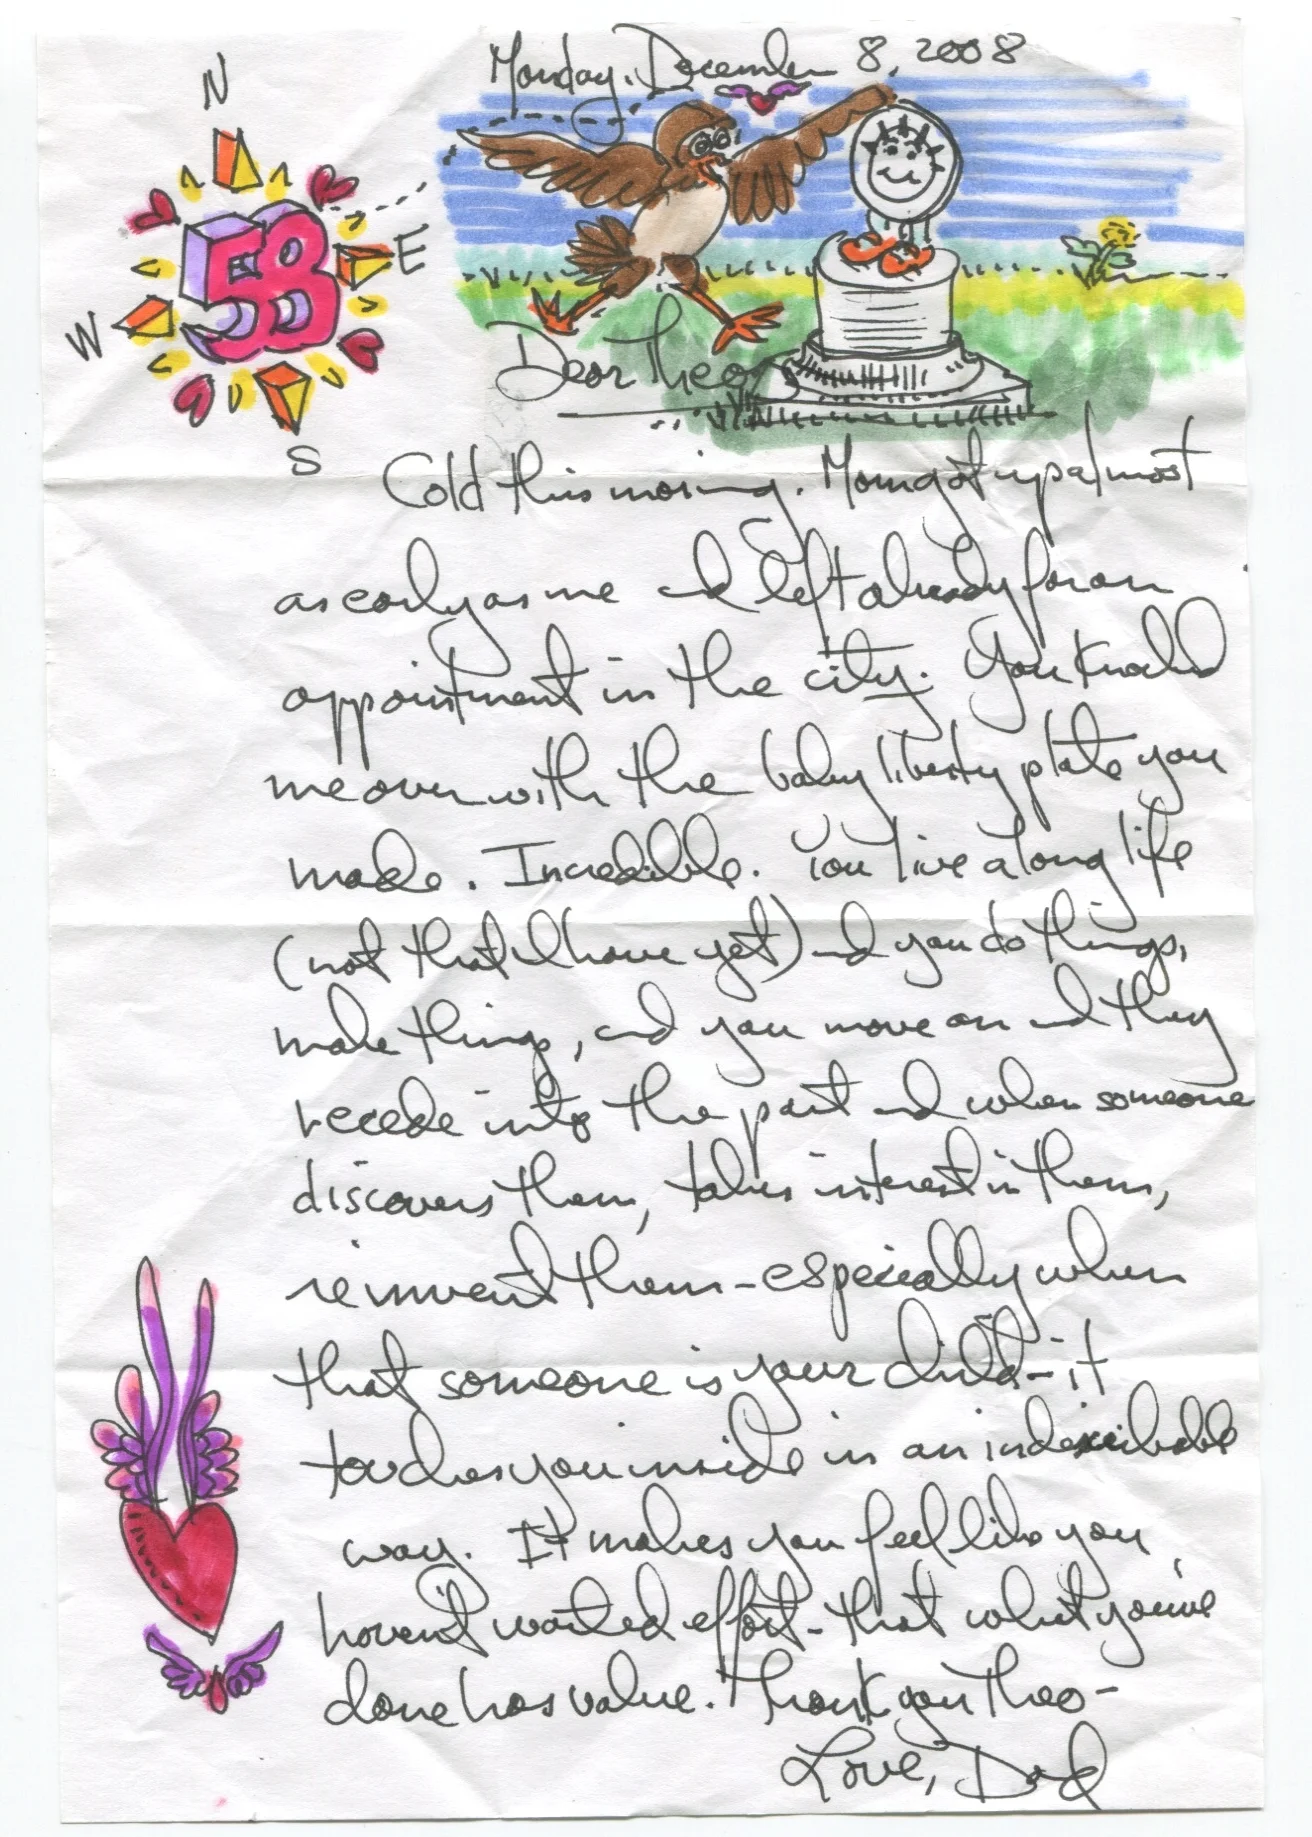 Monday, December 8, 2008
N
W
E
S
58
Dear Theo,
Cold this morning. Mom got up almost
as early as me and left already for an
appointment in the city. You knocked
me over with the baby liberty plate you
made. Incredible. You live a long life
(not that I have yet) and you do things,
make things, and you move on and they
recede into the past and when someone
discovers them, takes interest in them,
reinvent them - especially when
that someone is your child - it
touches you inside in an indescribable
way. It makes you feel like you
haven't wasted effort - that what you've
done has value. Thank you Theo -
Love, Dad